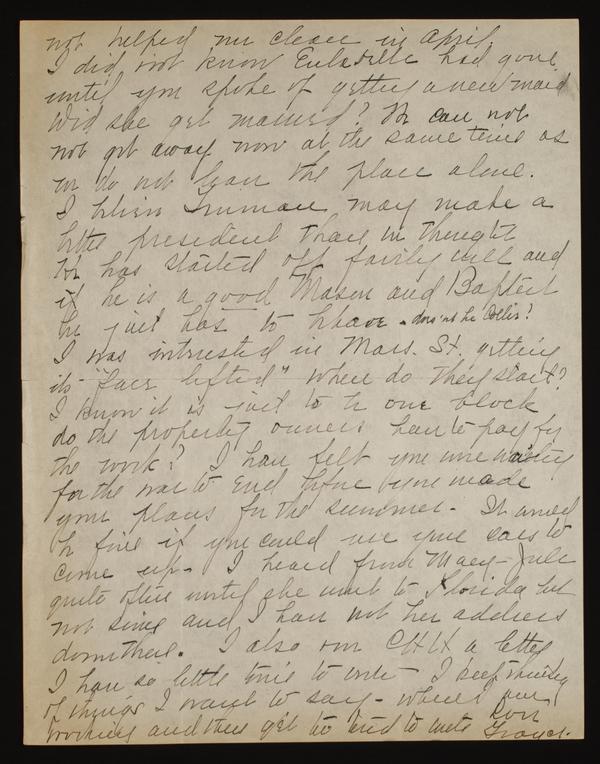 not helped me clean in April.
I did not know Eula dille had gone
until you spoke of getting a new maid
Did she get married? We can not
not get away now at the same time as
we do not leave the place alone.
I believe Truman may make a
better president than we thought
He has started off fairly well and
if he is a good Mason and Baptist
he just has to behave - does'nt he Collis?
I was intrested in Mars. St. getting
its "face lifted" where do they start?
I know it is just to be one block
do the property owners have to pay for
the work? I have felt you were waiting
for the war to end before you made
your plans for the summer - It would
be fine if you could use your cars to
come up - I heard from Mary - Jule
quite often until she went to Florida but
not since and I have not her address
down there. I also owe CHH a letter
I have so little time to write - I keep thinking
of things I want to say - when I am
working and then get too tired to write Love
Grace.